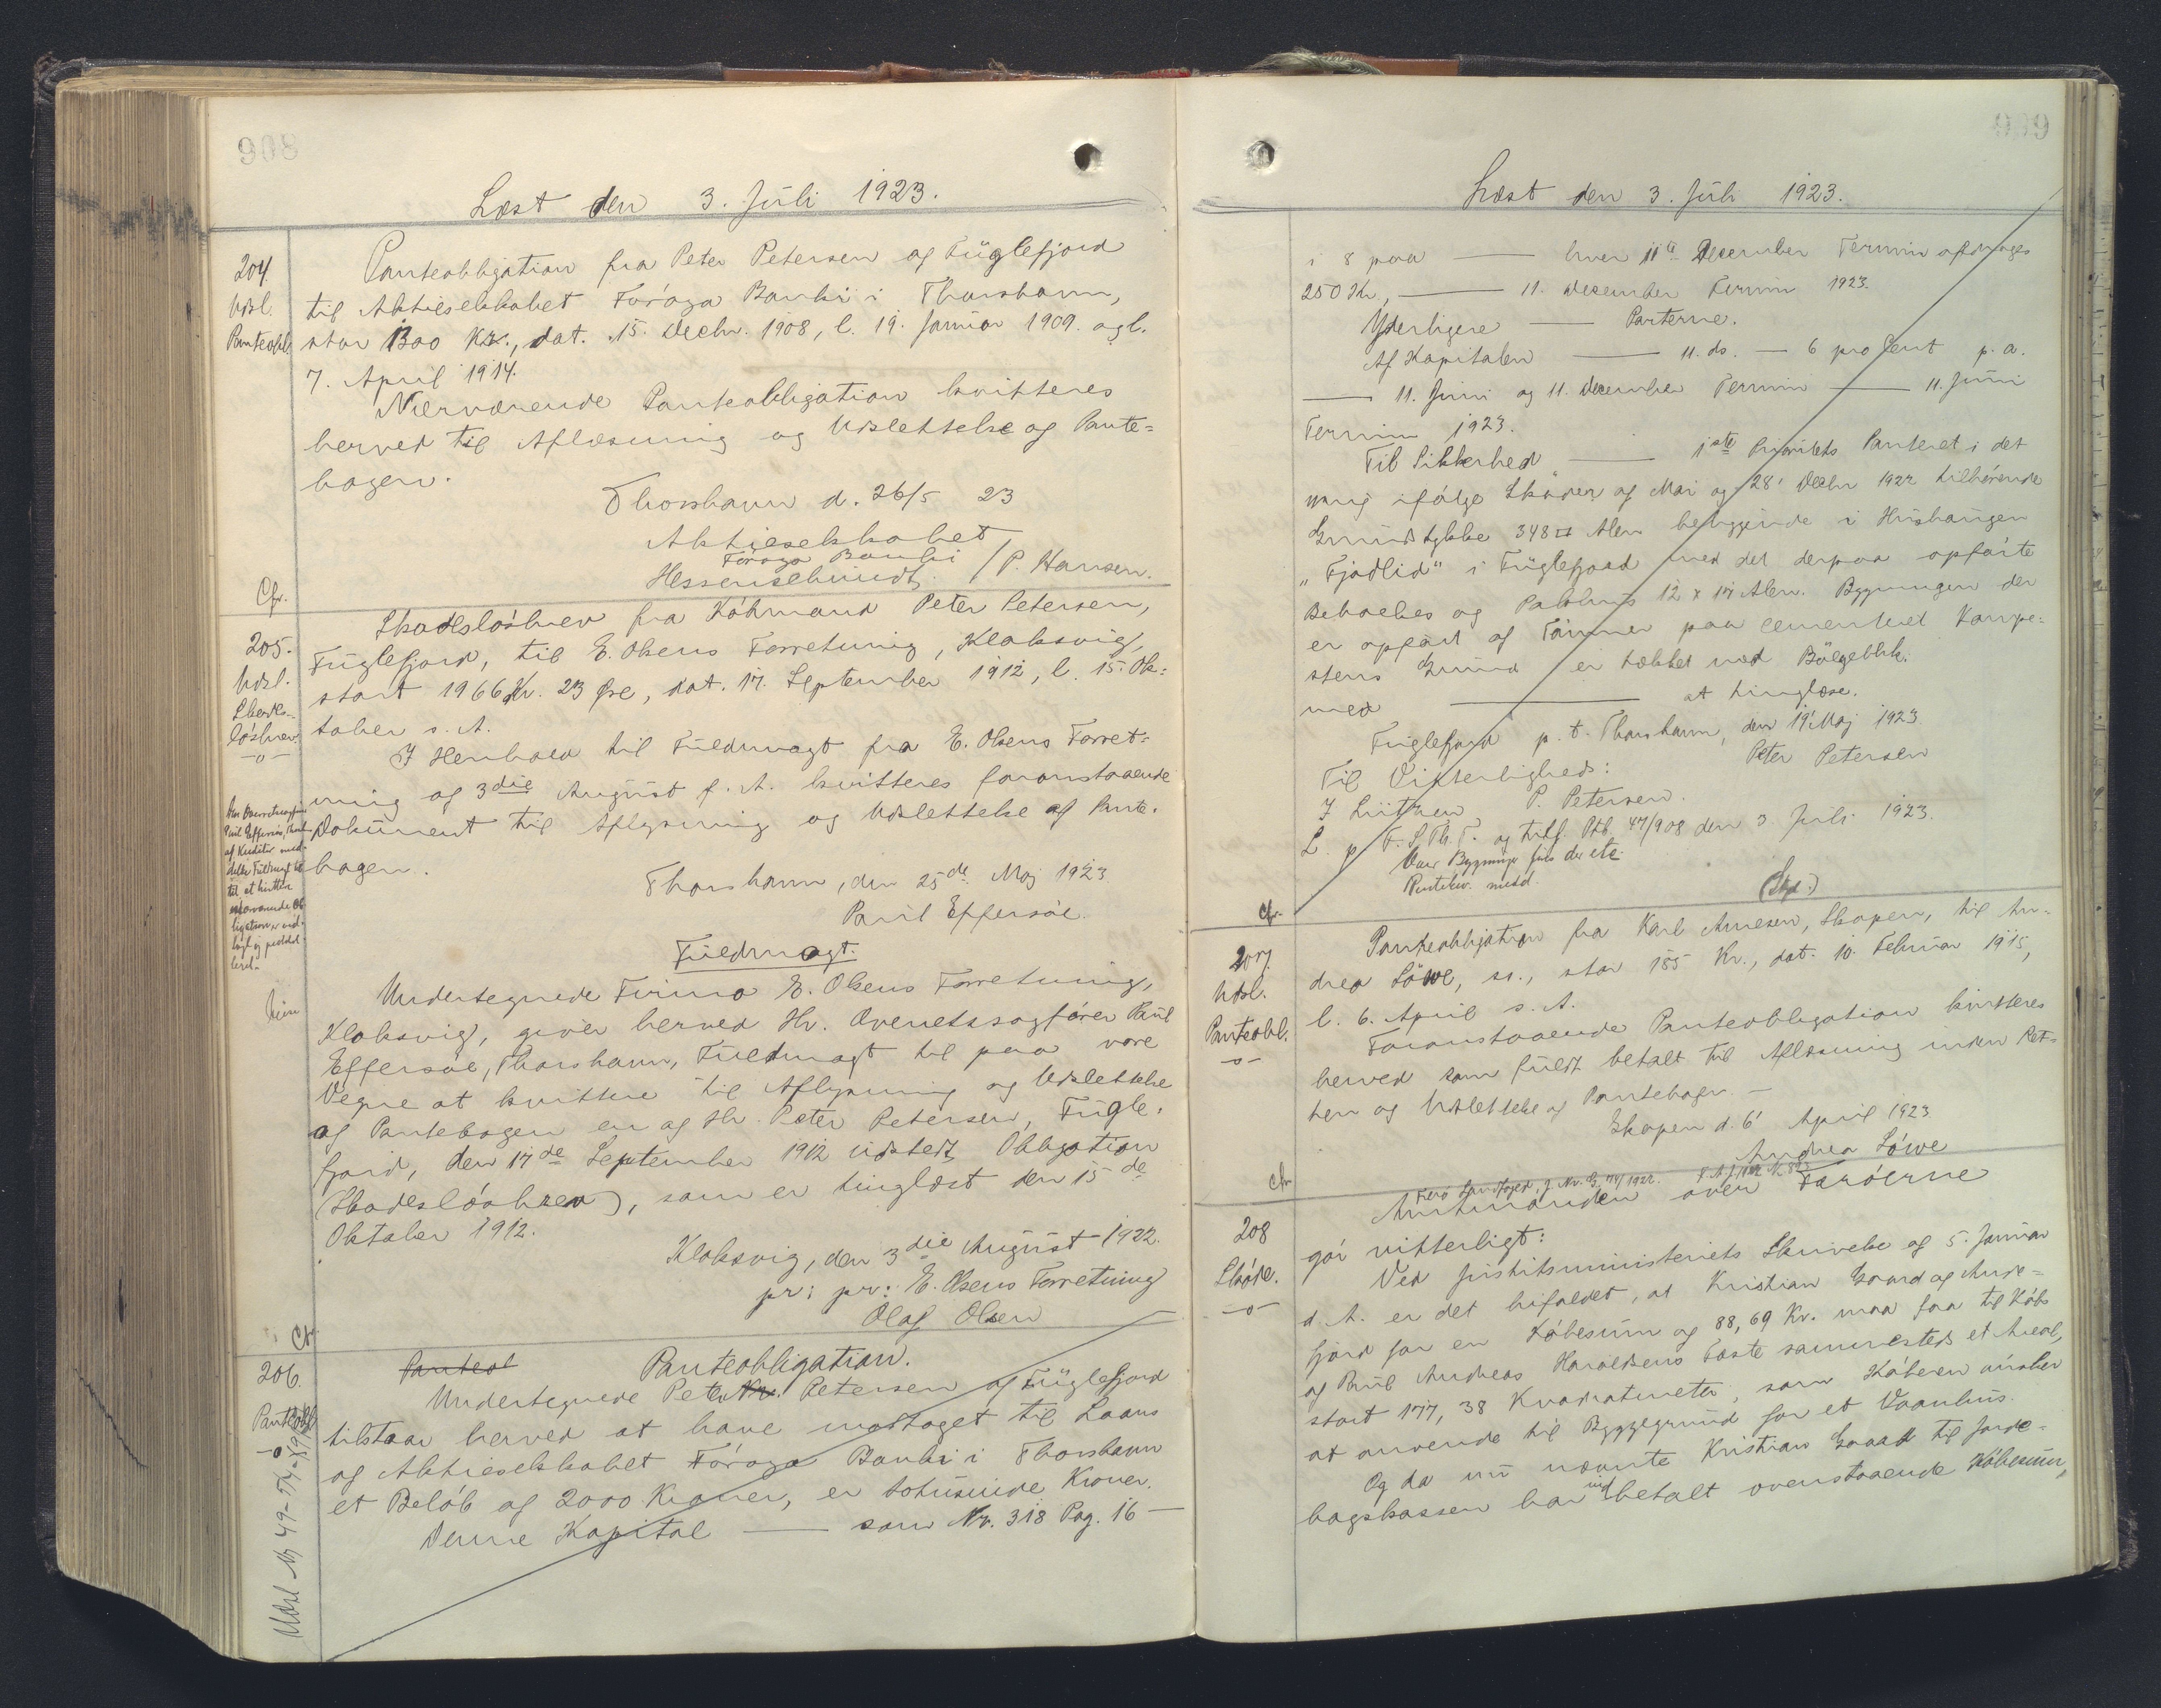 908
Læst den 3. Juli 1923.
204.
Udsl.
Panteobl.
Panteobligation fra Peter Petersen af Fuglefjord
til Aktieselskabet Føroya Banki i Thorshavn,
stor 1300 Kr., dat. 15. Decbr. 1908, l. 19. Januar 1909. og l.
7. April 1914.
Nærværende Panteobligation kvitteres
herved til Aflæsning og Udslettelse af Pante=
bogen.
Thorshavn d. 26/5 23
Aktieselskabet
Føroya Banki
Hessenschmidt / P. Hansen.
Cfr.
205.
Udsl.
Skades-
løsbrev.
-o-
Skadesløsbrev fra Købmand Peter Petersen,
Fuglefjord, til E. Olsens Forretning, Klaksvig,
stort 1966 Kr. 23 Øre, dat. 17. September 1912, l. 15. Ok=
tober s. A.
I Henhold til Fuldmagt fra E. Olsens Forret=
ning af 3die August f. A. kvitteres foranstaaende
Dokument til Aflysning og Udslettelse af Pante-
bogen.
Thorshavn, den 25de Maj 1923
Paul Effersøe.
Fuldmagt.
Undertegnede Firma E. Olsens Forretning,
Klaksvig, giver herved Hr. Overretssagfører Paul
Effersøe, Thorshavn, Fuldmagt til paa vore
Vegne at kvittere til Aflysning og Udslettelse
af Pantebogen en af Hr. Peter Petersen, Fugle-
fjord, den 17de September 1912 udstedt Obligation
(Skadesløsbrev), som er tinglæst den 15de
Oktober 1912.
Klaksvig, den 3die August 1922.
pr: pr: E. Olsens Forretning
Olaf Olsen
Cfr.
206.
Panteobl.
-o-
Panteobligation.
Undertegnede Peter Petersen af Fuglefjord
tilstaar herved at have modtaget til Laans
af Aktieselskabet Føroya Banki i Thorshavn
et Beløb af 2000 Kroner, er totusinde Kroner.
Denne Kapital — som Nr. 318 Pag. 16 —
909
Læst den 3. Juli 1923.
i 8 paa — hver 11te December Termin afdrages
250 Kr, — 11. December Termin 1923.
Yderligere — Parterne.
Af Kapitalen — 11. ds. — 6 pro Cent p. a.
— 11. Juni og 11. December Termin — 11. Juni
Termin 1923.
Til Sikkerhed — 1ste Prioritets Panteret i det
mig ifølge Skøder af Mai og 28' Decbr 1922 tilhørende
Grundstykke 348 □ Alen beliggende i Hushaugen
"Fjødlid" i Fuglefjord med det derpaa opførte
Beboelses og Pakhus 12 x 14 Alen. Bygningen der
er opført af Tømmer paa cementeret Kampe-
stens Grund er tækket med Bølgeblik.
med — at tinglæse.
Fuglefjord p. t. Thorshavn, den 19' Maj 1923
Peter Petersen
Til Vitterlighed:
P. Petersen.
L. p. F. S. Th. T. og tilf. Ptb. 47/908 den 3 Juli 1923.
Cfr.
(Skp.)
207.
Udsl.
Panteobl.
-o-
Panteobligation fra Karl Arnesen, Skopen, til An-
drea Löwe, ss., stor 155 Kr., dat. 10. Februar 1915,
l. 6. April s. A.
Foranstaaende Panteobligation kvitteres
herved som fuldt betalt til Aflæsning inden Ret-
ten og Udslettelse af Pantebogen. —
Skopen d. 6' April 1923
Andrea Löwe
Cfr
208
Skøde.
-o-
Amtmanden over Færøerne
gør vitterligt:
Ved Justitsministeriets Skrivelse af 5. Januar
d. A. er det bifaldet, at Kristian Gaard af Ande=
fjord for en Købesum af 88,69 Kr. maa faa til Køb
af Paul Andreas Haraldsens Fæste sammesteds et Areal,
stort 177,38 Kvadratmeter, som Køberen ønsker
at anvende til Byggegrund for et Vaanhus.
Og da nu nævnte Kristian Gaard til Jorde-
bogskassen har indbetalt ovenstaaende Købesum,